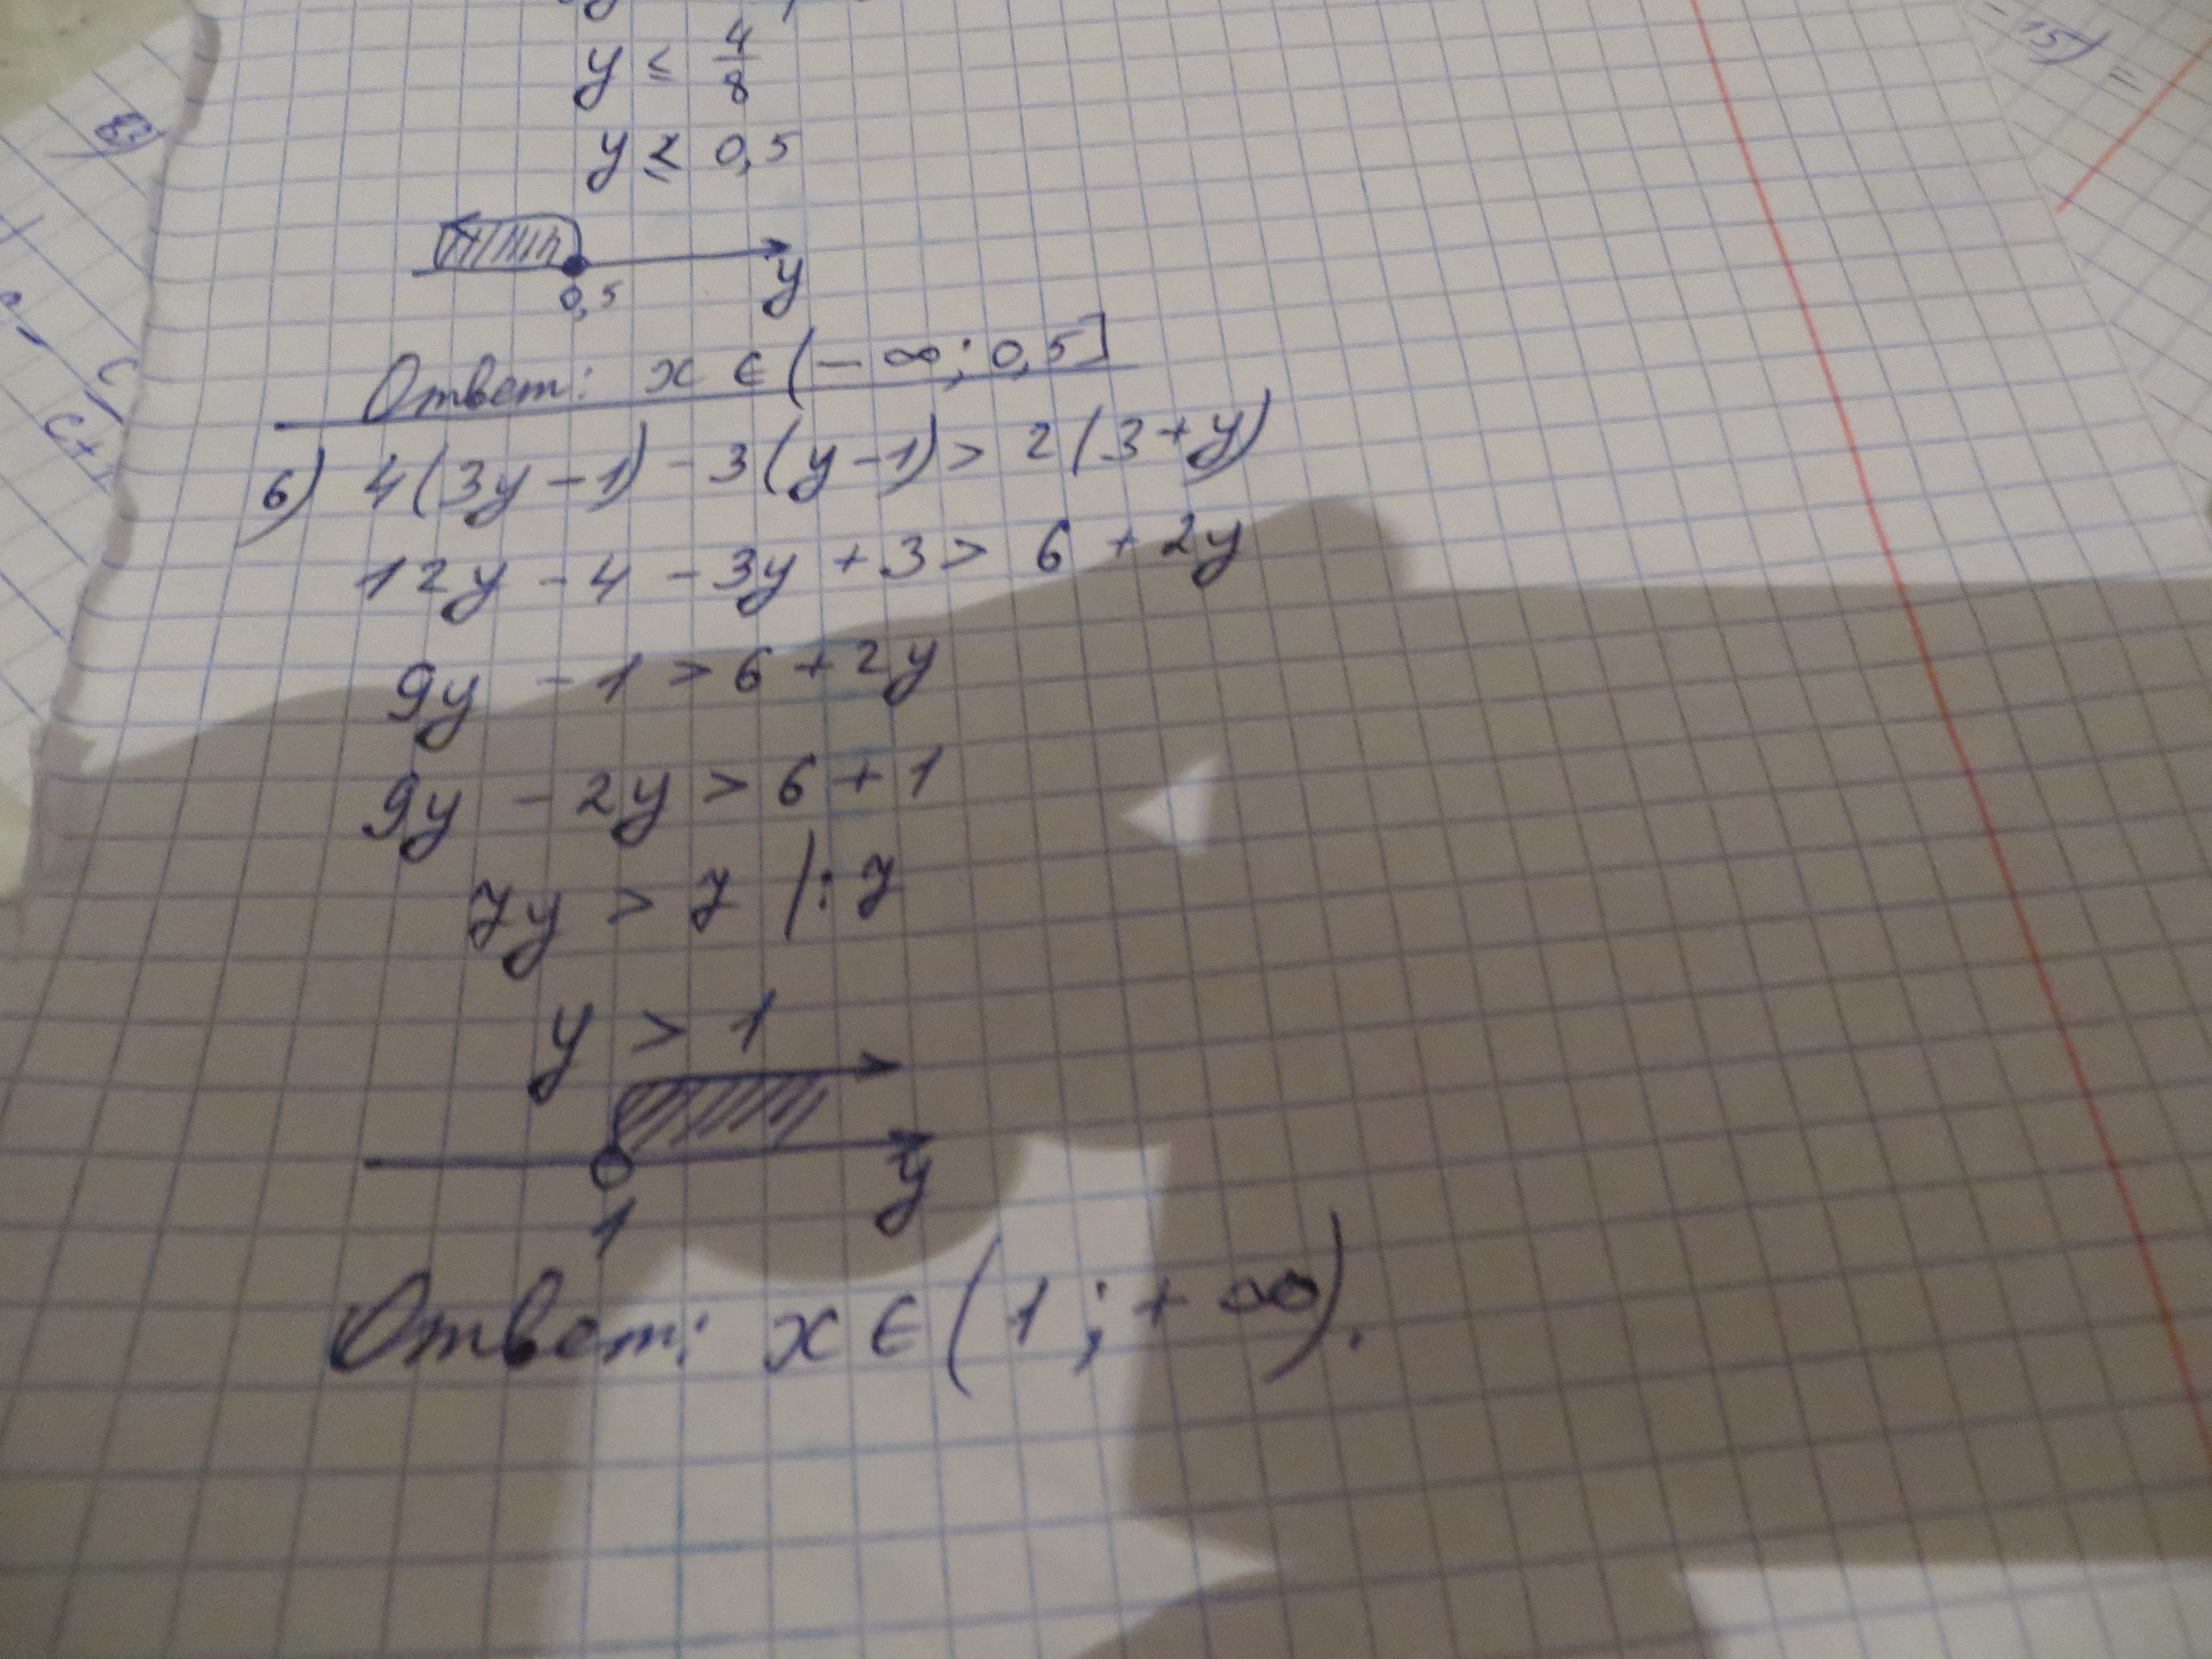 y ≤ 4/8
y ≤ 0,5
0,5 y
Ответ: x ∈ (-∞; 0,5]
6) 4(3y-1) - 3(y-1) > 2(3+y)
12y - 4 - 3y + 3 > 6 + 2y
9y - 1 > 6 + 2y
9y - 2y > 6 + 1
7y > 7 |: 7
y > 1
1 y
Ответ: x ∈ (1; +∞).
-15) =